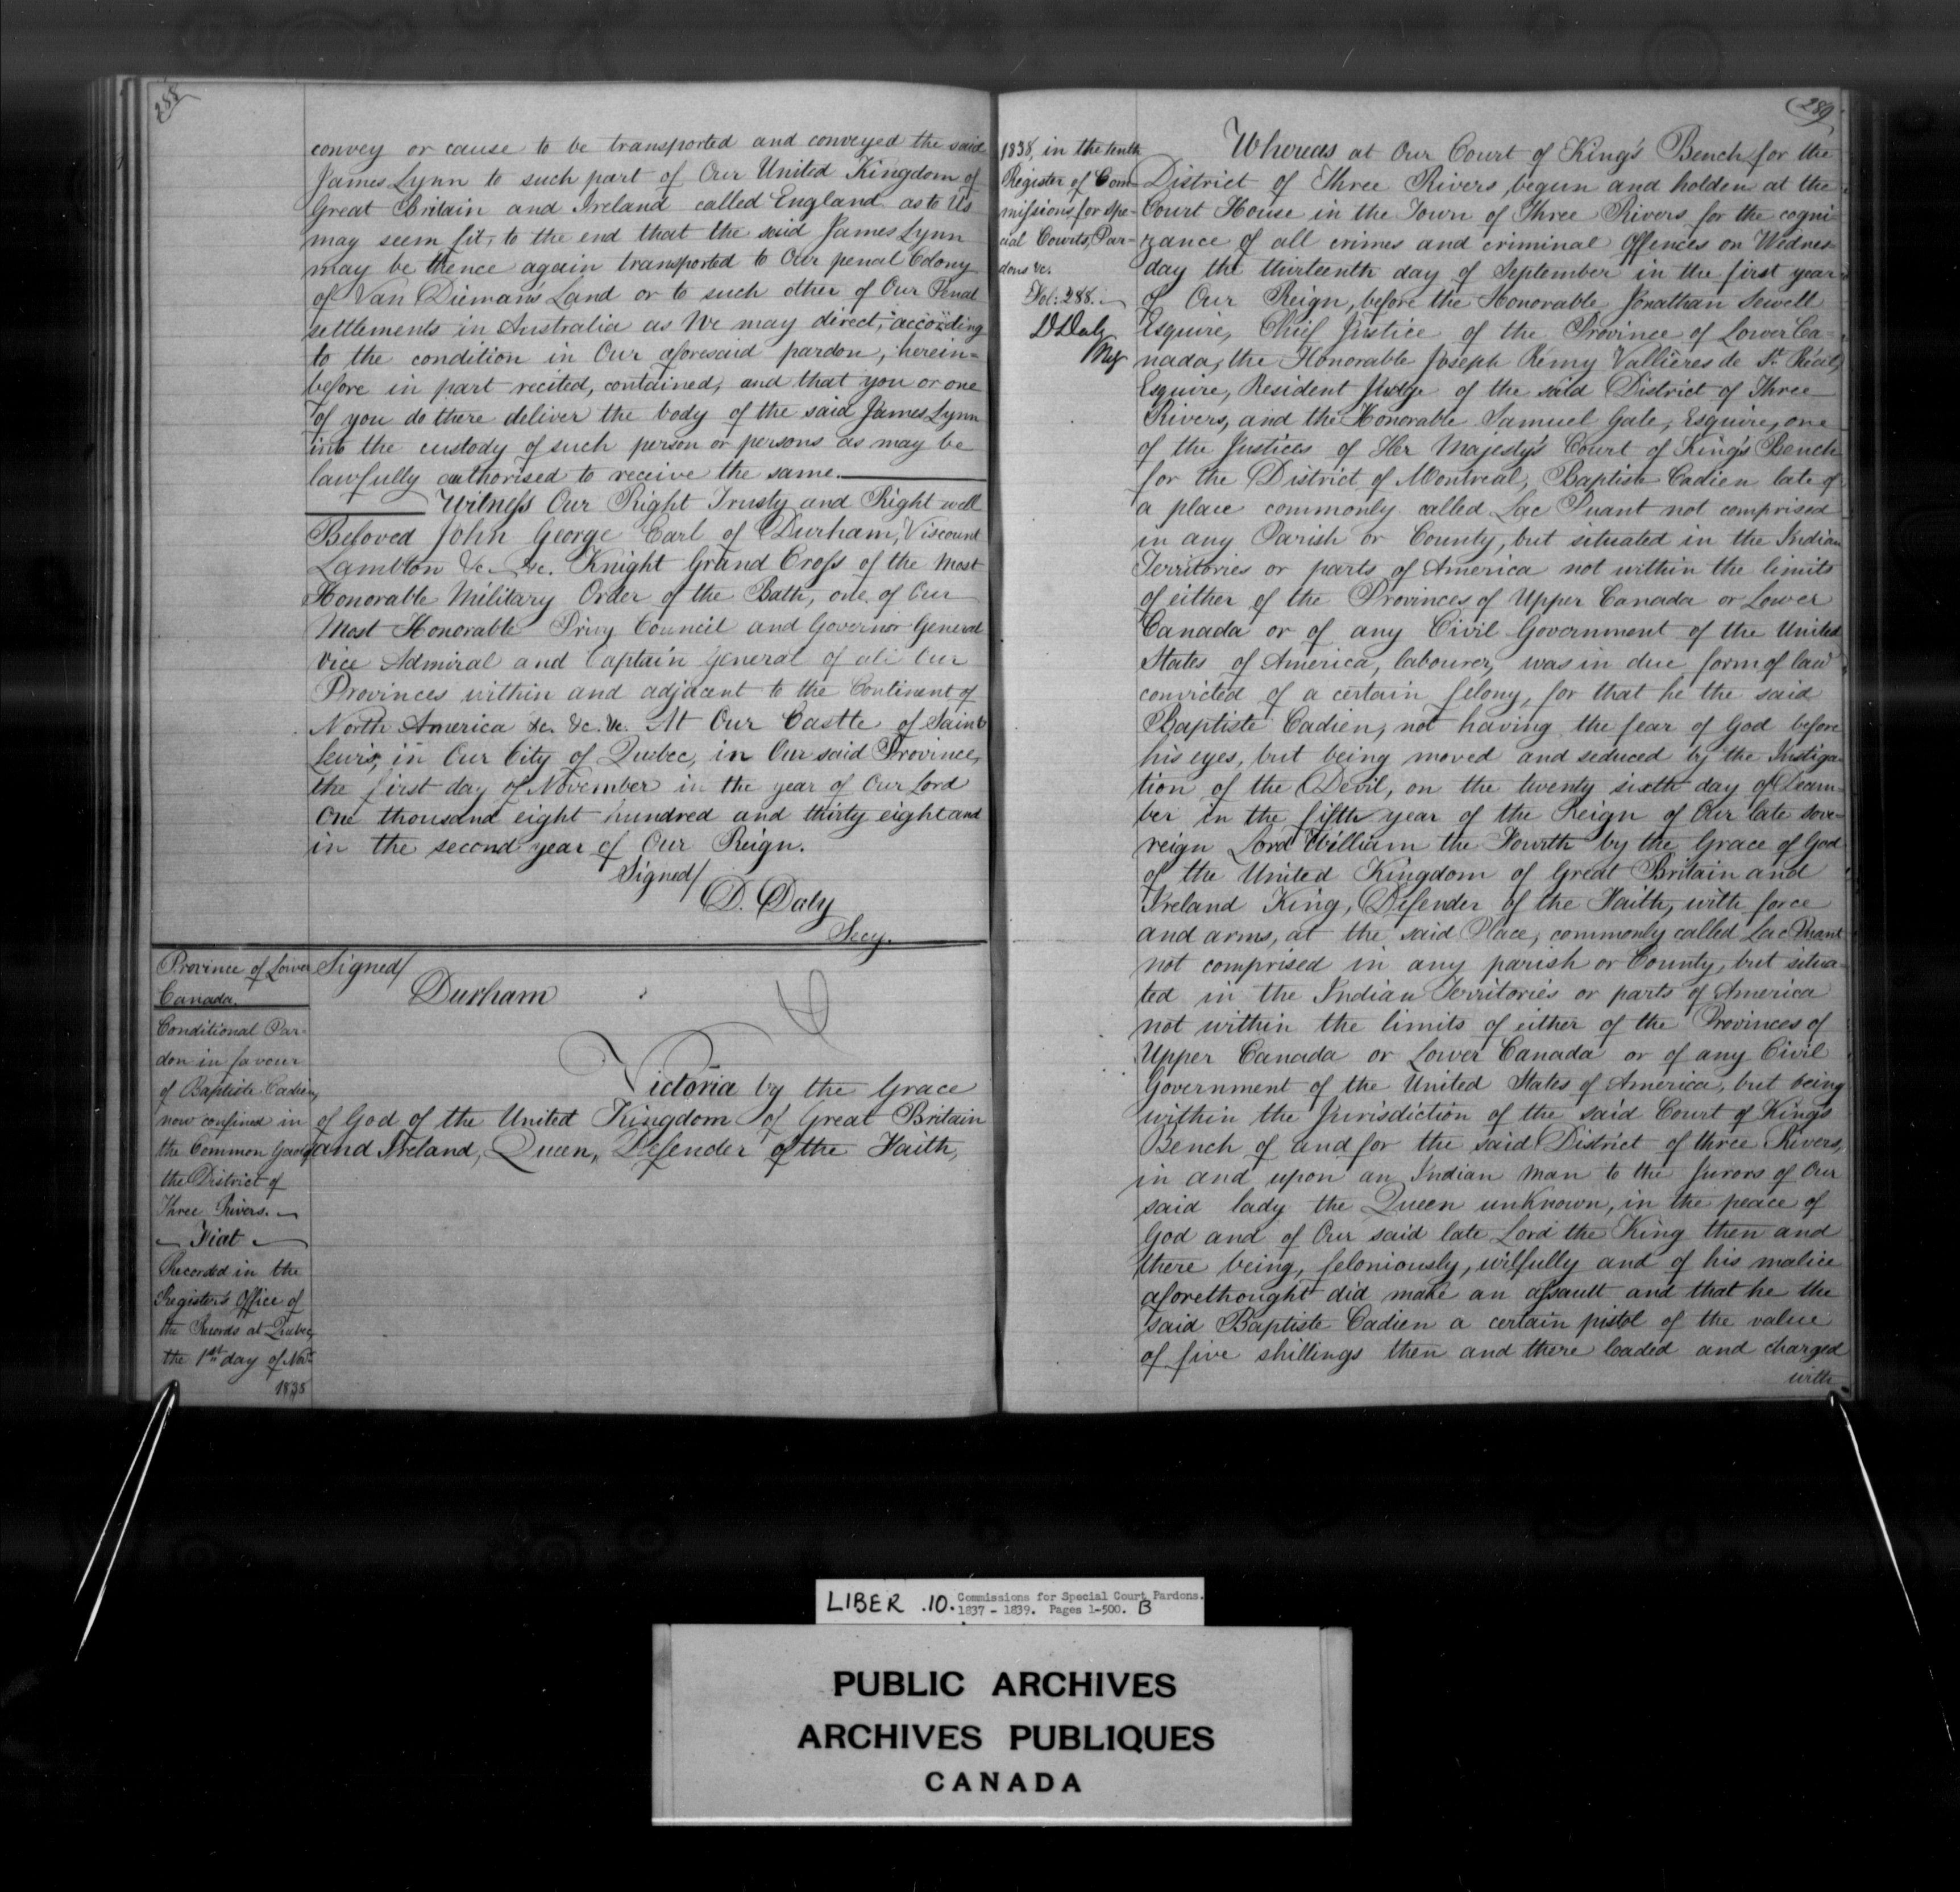 288
convey or cause to be transported and conveyed the said
James Lynn to such part of Our United Kingdom of
Great Britain and Ireland called England as to Us
may seem fit, to the end that the said James Lynn
may be thence again transported to Our penal Colony
of Van Dieman's Land or to such other of Our Penal
settlements in Australia as We may direct, according
to the condition in Our aforesaid pardon, herein-
before in part recited, contained, and that you or one
of you do there deliver the body of the said James Lynn
into the custody of such person or persons as may be
lawfully authorised to receive the same.
Witness Our Right Trusty and Right well
Beloved John George Earl of Durham, Viscount
Lambton &c. &c. Knight Grand Cross of the Most
Honorable Military Order of the Bath, one of Our
Most Honorable Privy Council and Governor General
Vice Admiral and Captain General of all Our
Provinces within and adjacent to the Continent of
North America &c. &c. &c. At Our Castle of Saint
Lewis, in Our City of Quebec, in Our said Province,
the first day of November in the year of Our Lord
One thousand eight hundred and thirty eight and
in the second year of Our Reign.
Signed/
D. Daly
Secy.
Province of Lower
Canada.
Conditional Par-
don in favour
of Baptiste Cadien,
now confined in
the Common Gaol of
the District of
Three Rivers.
Fiat
Recorded in the
Register's Office of
the Records at Quebec,
the 1st day of Nov.
1838
Signed/
Durham
Victoria by the Grace
of God of the United Kingdom of Great Britain
and Ireland, Queen, Defender of the Faith,
289
1838, in the tenth
Register of Com-
missions for Spe-
cial Courts, Par-
dons &c.
Fol: 288.
D Daly
Reg
Whereas at Our Court of King's Bench for the
District of Three Rivers, begun and holden at the
Court House in the Town of Three Rivers for the cogni-
zance of all crimes and criminal Offences on Wednes-
day the thirteenth day of September in the first year
of Our Reign, before the Honorable Jonathan Sewell
Esquire, Chief Justice of the Province of Lower Ca-
nada, the Honorable Joseph Remy Vallières de St. Réal,
Esquire, Resident Judge of the said District of Three
Rivers, and the Honorable Samuel Gale, Esquire, one
of the Justices of Her Majesty's Court of King's Bench
for the District of Montreal, Baptiste Cadien late of
a place commonly called Lac Puant not comprised
in any Parish or County, but situated in the Indian
Territories or parts of America not within the limits
of either of the Provinces of Upper Canada or Lower
Canada or of any Civil Government of the United
States of America, labourer, was in due form of law
convicted of a certain felony, for that he the said
Baptiste Cadien, not having the fear of God before
his eyes, but being moved and seduced by the Instiga-
tion of the Devil, on the twenty sixth day of Decem-
ber in the fifth year of the Reign of Our late sove-
reign Lord William the Fourth by the Grace of God
of the United Kingdom of Great Britain and
Ireland King, Defender of the Faith, with force
and arms, at the said Place, commonly called Lac Puant
not comprised in any parish or County, but situa-
ted in the Indian Territories or parts of America
not within the limits of either of the Provinces of
Upper Canada or Lower Canada or of any Civil
Government of the United States of America, but being
within the Jurisdiction of the said Court of King's
Bench of and for the said District of three Rivers,
in and upon an Indian man to the Jurors of Our
said lady the Queen unknown, in the peace of
God and of Our said late Lord the King then and
there being, feloniously, wilfully and of his malice
aforethought did make an assault and that he the
said Baptiste Cadien a certain pistol of the value
of five shillings then and there loaded and charged
with
LIBER .10. Commissions for Special Court Pardons.
1837 - 1839. Pages 1-500. B
PUBLIC ARCHIVES
ARCHIVES PUBLIQUES
CANADA